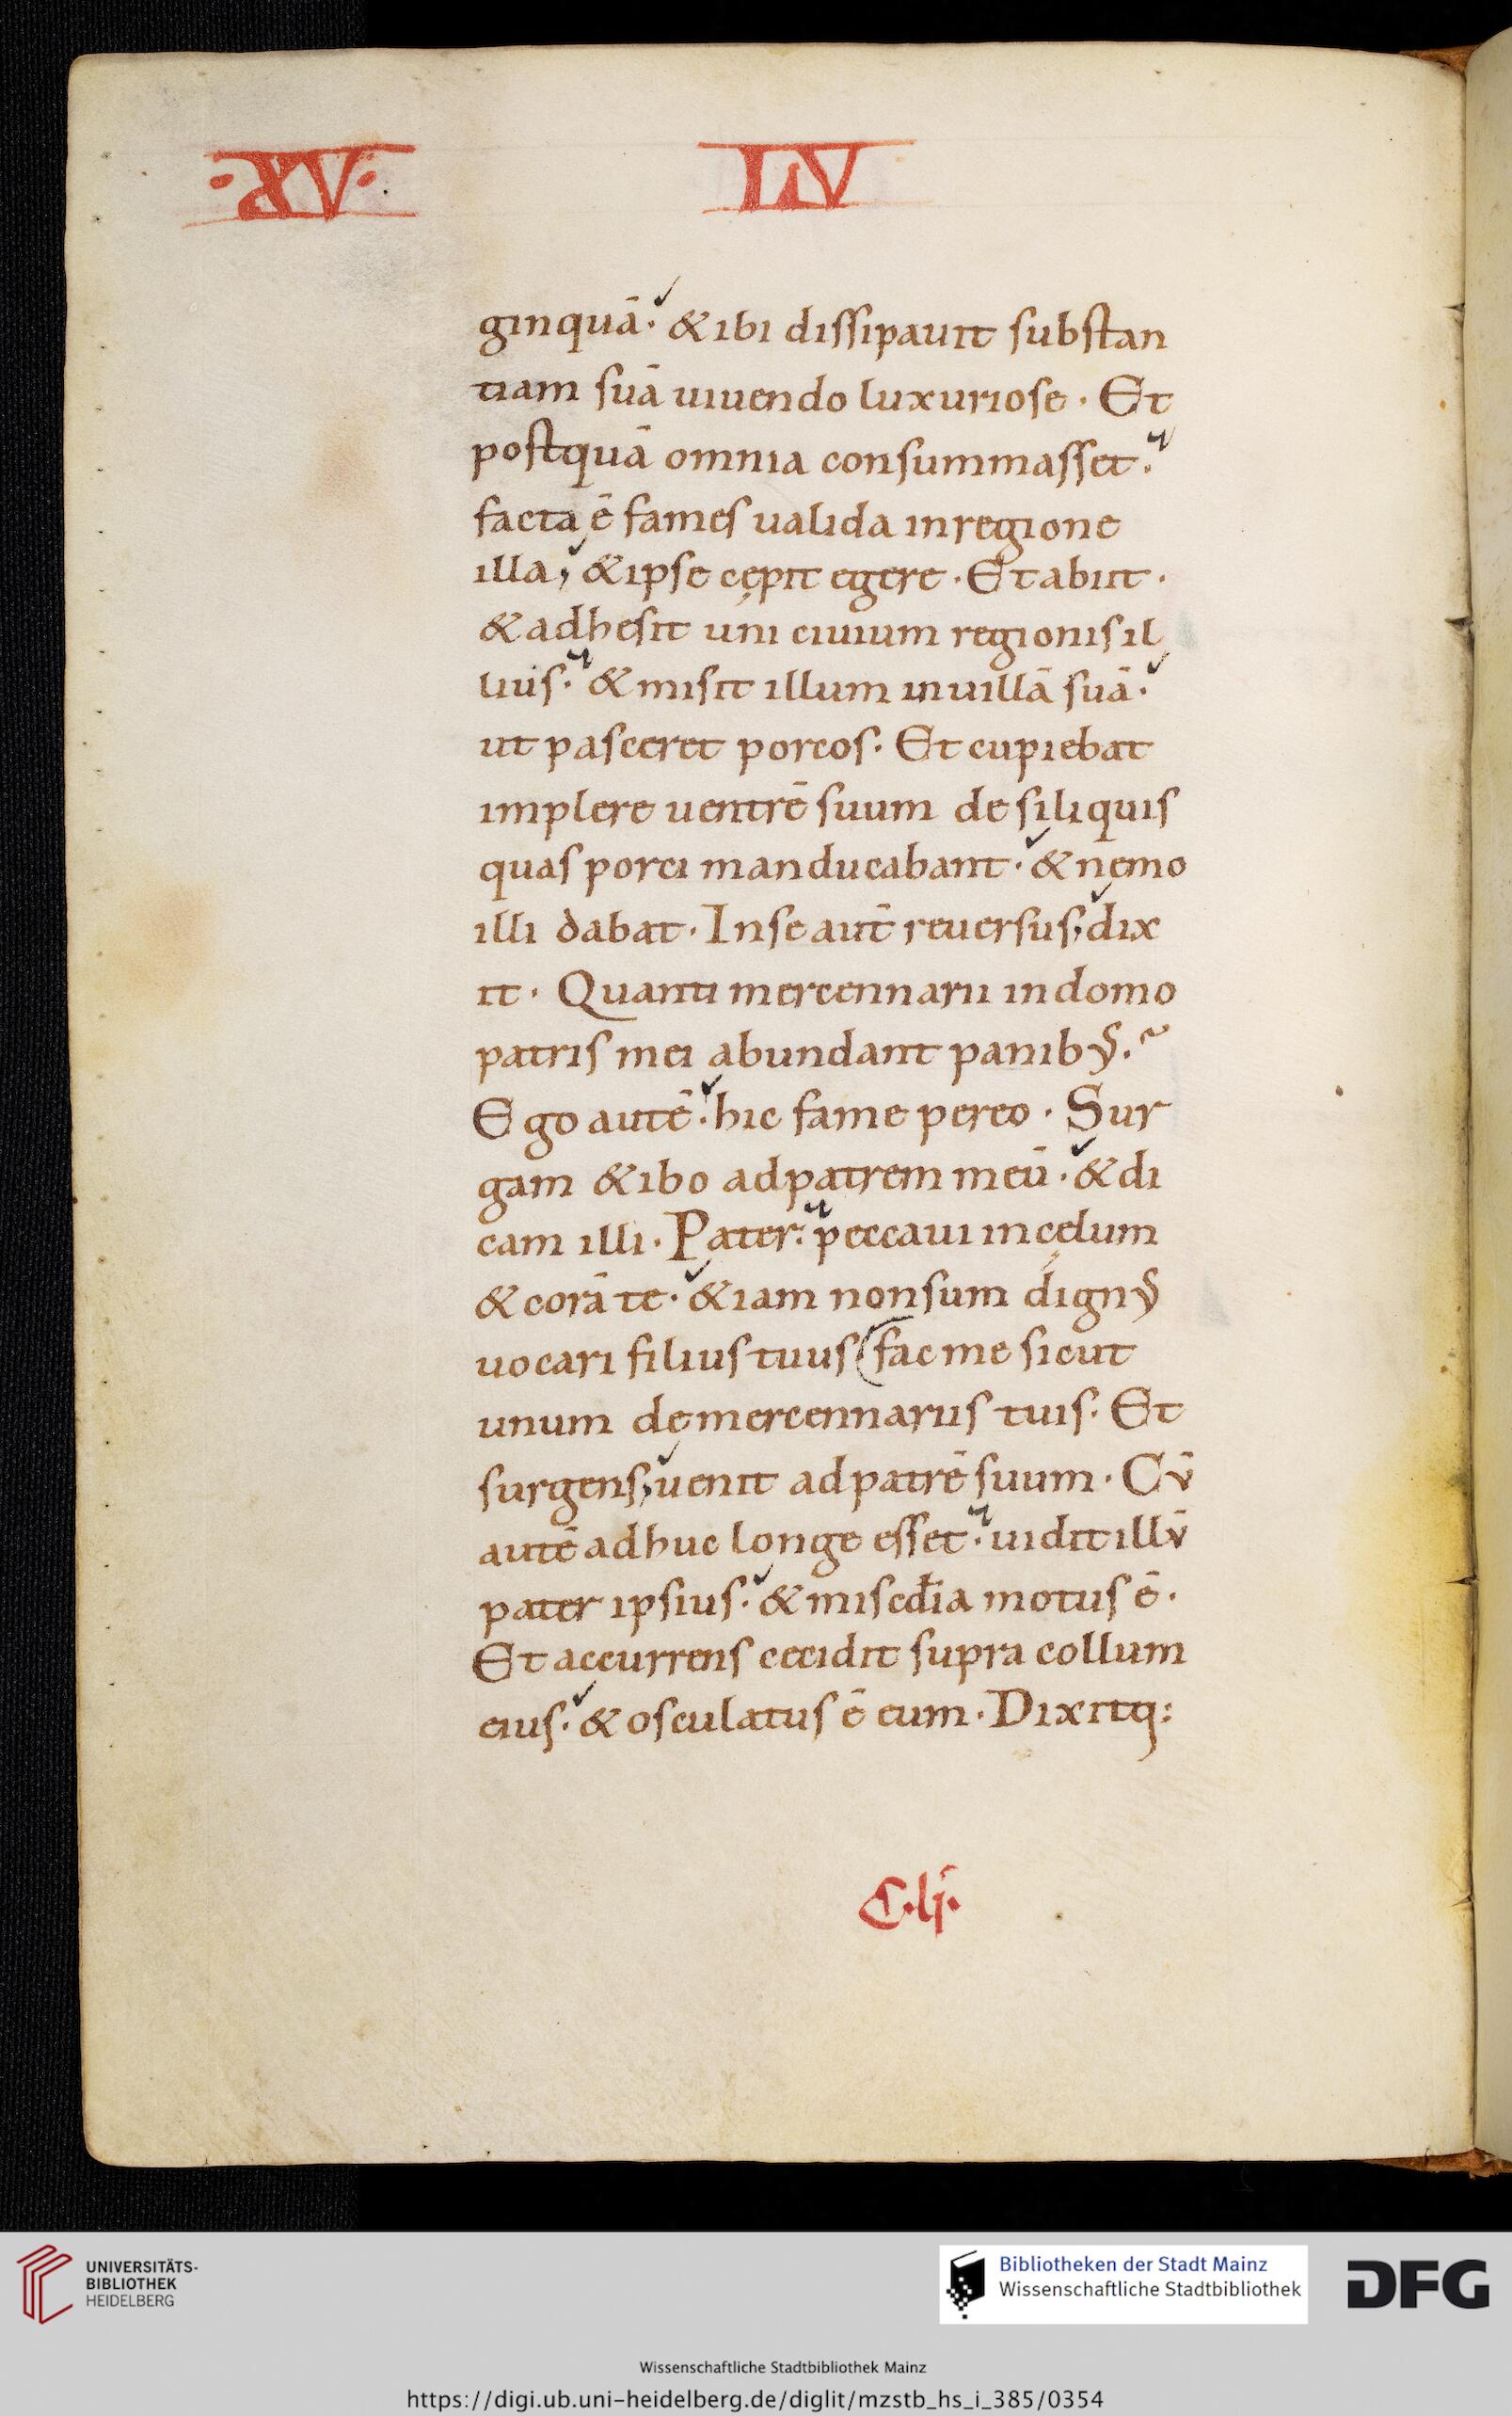 ·XV· LV
ginquā· & ibi dissipauit substan
tiam suā uiuendo luxuriose· Et
postquā omnia consummasset·
facta ē fames ualida in regione
illa, & ipse cępit egere· Et abiit·
& adhesit uni ciuium regionis il
lius· & misit illum in uillā suā·
ut pasceret porcos· Et cupiebat
implere uentrē suum de siliquis
quas porci manducabant· & nemo
illi dabat· In se aut̄ reuersus, dix
it· Quanti mercennarii in domo
patris mei abundant panibꝰ·
Ego autē· hic fame pereo· Sur
gam & ibo ad patrem meū· & di
cam illi· Pater· peccaui in cęlum
& corā te· & iam non sum dignꝰ
uocari filius tuus fac me sicut
unum de mercennariis tuis· Et
surgens, uenit ad patrē suum· Cū
autē adhuc longe esset· uidit illū
pater ipsius· & misc̄dia motus ē·
Et accurrens cecidit supra collum
eius· & osculatus ē eum· Dixitq:
C·lj·
UNIVERSITÄTS-
BIBLIOTHEK
HEIDELBERG
Bibliotheken der Stadt Mainz
Wissenschaftliche Stadtbibliothek
DFG
Wissenschaftliche Stadtbibliothek Mainz
https://digi.ub.uni-heidelberg.de/diglit/mzstb_hs_i_385/0354